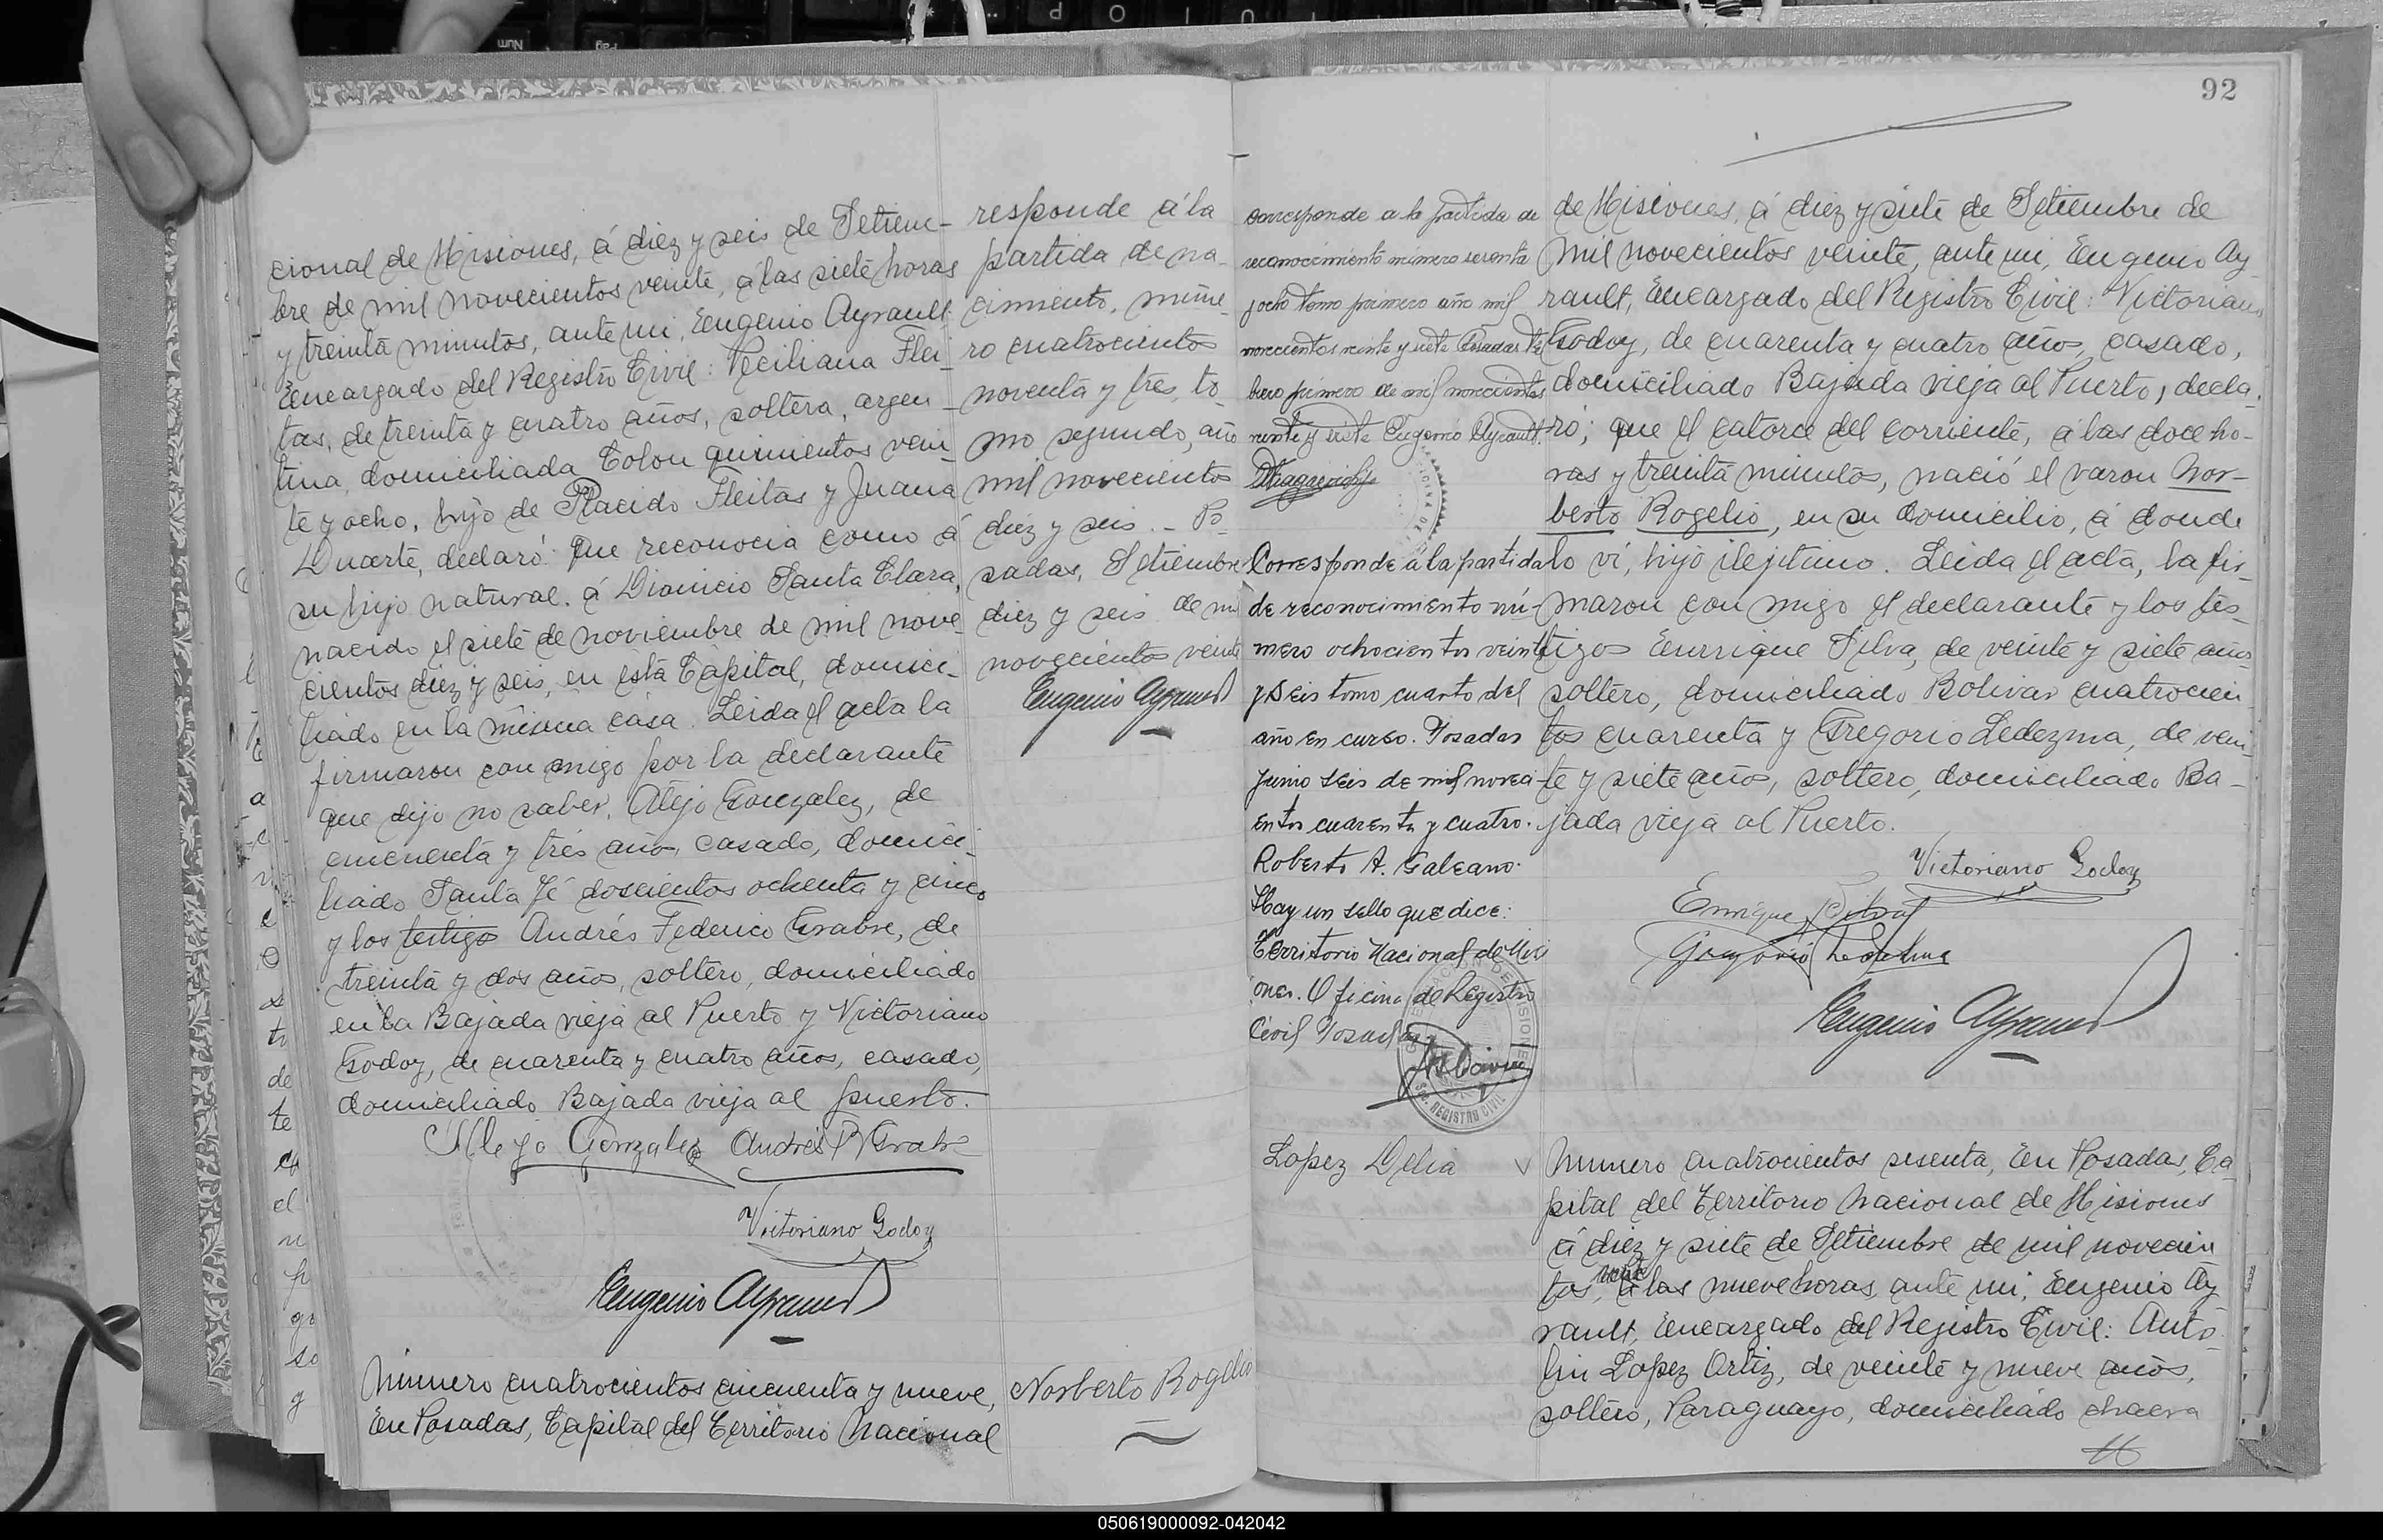 cional de Misiones, á diez y seis de Setiem-
bre de mil novecientos veinte, á las siete horas
y treinta minutos, ante mi, Eugenio Ayrault
Encargado del Registro Civil: Feciliana Flei-
tas, de treinta y cuatro años, soltera, argen-
tina, domiciliada Colon quinientos vein-
te y ocho, hijo de Placido Fleitas y Juana
Duarte, declaró: que reconocia como á
su hijo natural. á Dionicio Santa Clara,
nacido el siete de noviembre de mil nove-
cientos diez y seis, en esta Capital, domici-
liado en la misma casa. Leida el acta la
firmaron con migo por la declarante
que dijo no saber, Alejo Gonzalez, de
cincuenta y tres años, casado, domici-
liado Santa Fé doscientos ochenta y cinco
y los testigos Andrés Federico Grabre, de
treinta y dos años, soltero, domiciliado
en la Bajada vieja al Puerto y Victoriano
Godoy, de cuarenta y cuatro años, casado,
domiciliado Bajada vieja al puerto.
Alejo Gonzalez Andrés
Victoriano Godoy
Eugenio Ayrault
Número cuatrocientos cincuenta y nueve,
En Posadas, Capital del Territorio Nacional
responde á la
partida de na-
cimiento, núme-
ro cuatrocientos
noventa y tres, to-
mo segundo, año
mil novecientos
diez y seis. - Po-
sadas, Setiembre
diez y seis de mil
novecientos veinte
Eugenio Ayrault
Norberto Rogelio
92
Corresponde a la partida de
reconocimiento número sesenta
y ocho tomo primero año mil
novecientos veinte y siete Posadas
brero primero de mil novecientos
veinte y siete Eugenio Ayrault.
Corresponde á la partida
de reconocimiento nú-
mero ochocientos veinti
y seis tomo cuarto del
año en curso. Posadas
Junio seis de mil noveci
entos cuarenta y cuatro.
Roberto A. Galeano.
Hay un sello que dice:
Territorio Nacional de Misi
ones. Oficina de Registro
Civil Posadas
REGISTRO CIVIL
Lopez Delia
de Misiones, á diez y siete de Setiembre de
mil novecientos veinte, ante mi, Eugenio Ay-
rault, Encargado del Registro Civil: Victoriano
Godoy, de cuarenta y cuatro años, casado,
domiciliado Bajada vieja al Puerto, decla-
ró; que el catorce del corriente, á las doce ho-
ras y treinta minutos, nació el varon Nor-
berto Rogelio, en su domicilio, á donde
lo ví, hijo ilejitimo. Leida el acta, la fir-
maron con migo el declarante y los tes-
tigos Enrrique Silva, de veinte y siete años
soltero, domiciliado Bolivar cuatrocien
tos cuarenta y Gregorio Ledezma, de vein-
te y siete años, soltero, domiciliado Ba-
jada vieja al Puerto.
Victoriano Godoy
Enrique Silva
Gregorio Ledezma
Eugenio Ayrault
Número cuatrocientos sesenta, En Posadas, Ca
pital del Territorio Nacional de Misiones
á diez y siete de Setiembre de mil novecien
tos, veinte á las nueve horas, ante mi, Eugenio Ay
rault, Encargado del Registro Civil: Anto
lin Lopez Ortiz, de veinte y nueve años,
soltero, Paraguayo, domiciliado chacra
050619000092-042042